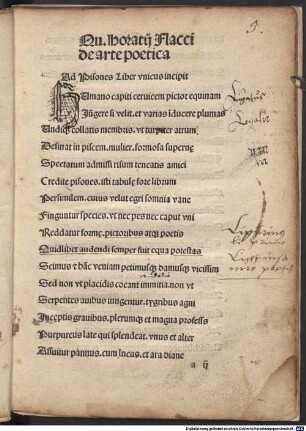 Qu. Horatij Flacci
de arte poetica
Ad Pisones Liber vnicus incipit
HUmano capiti ceruicem pictor equinam
Jũgere si velit. et varias iducere plumas
Undicꝫ collatis membris. vt turpiter atrum
Desinat in piscem. mulier. formosa superne
Spectatum admissi risum teneatis amici
Credite pisones. isti tabule fore librum
Persimilem. cuius velut egri somnia vane
Finguntur species. vt nec pes nec caput vni
Reddatur forme. pictoribus atqꝫ poetis
Quidliber audendi semper fuit equa potestas
Scimus et hãc veniam petimusqꝫ damusqꝫ vicissim
Sed non vt placidis coeant immitia. non vt
Serpentes auibus iungentur. tygribus agni
Inceptis grauibus. plerumqꝫ et magna professis
Purpureus late qui splendeat. vnus et alter
Assuitur pannus. cum lucus. et ara diane
a ij